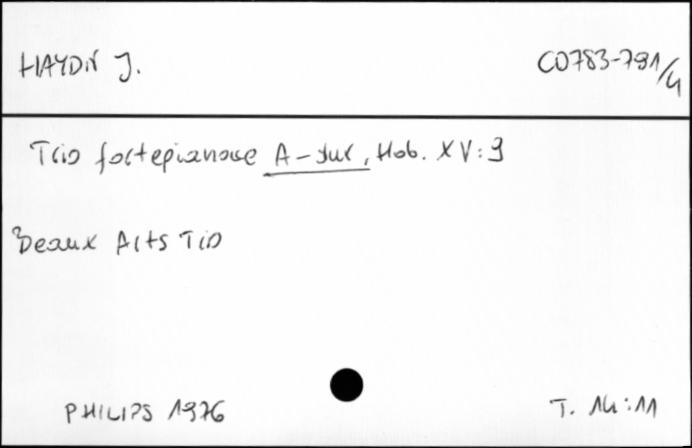 HAYDN J.
CD783-791/4
Trio fortepianowe A-dur, Hob. XV:9
Beaux Arts Trio
PHILIPS 1976
T. 14:11